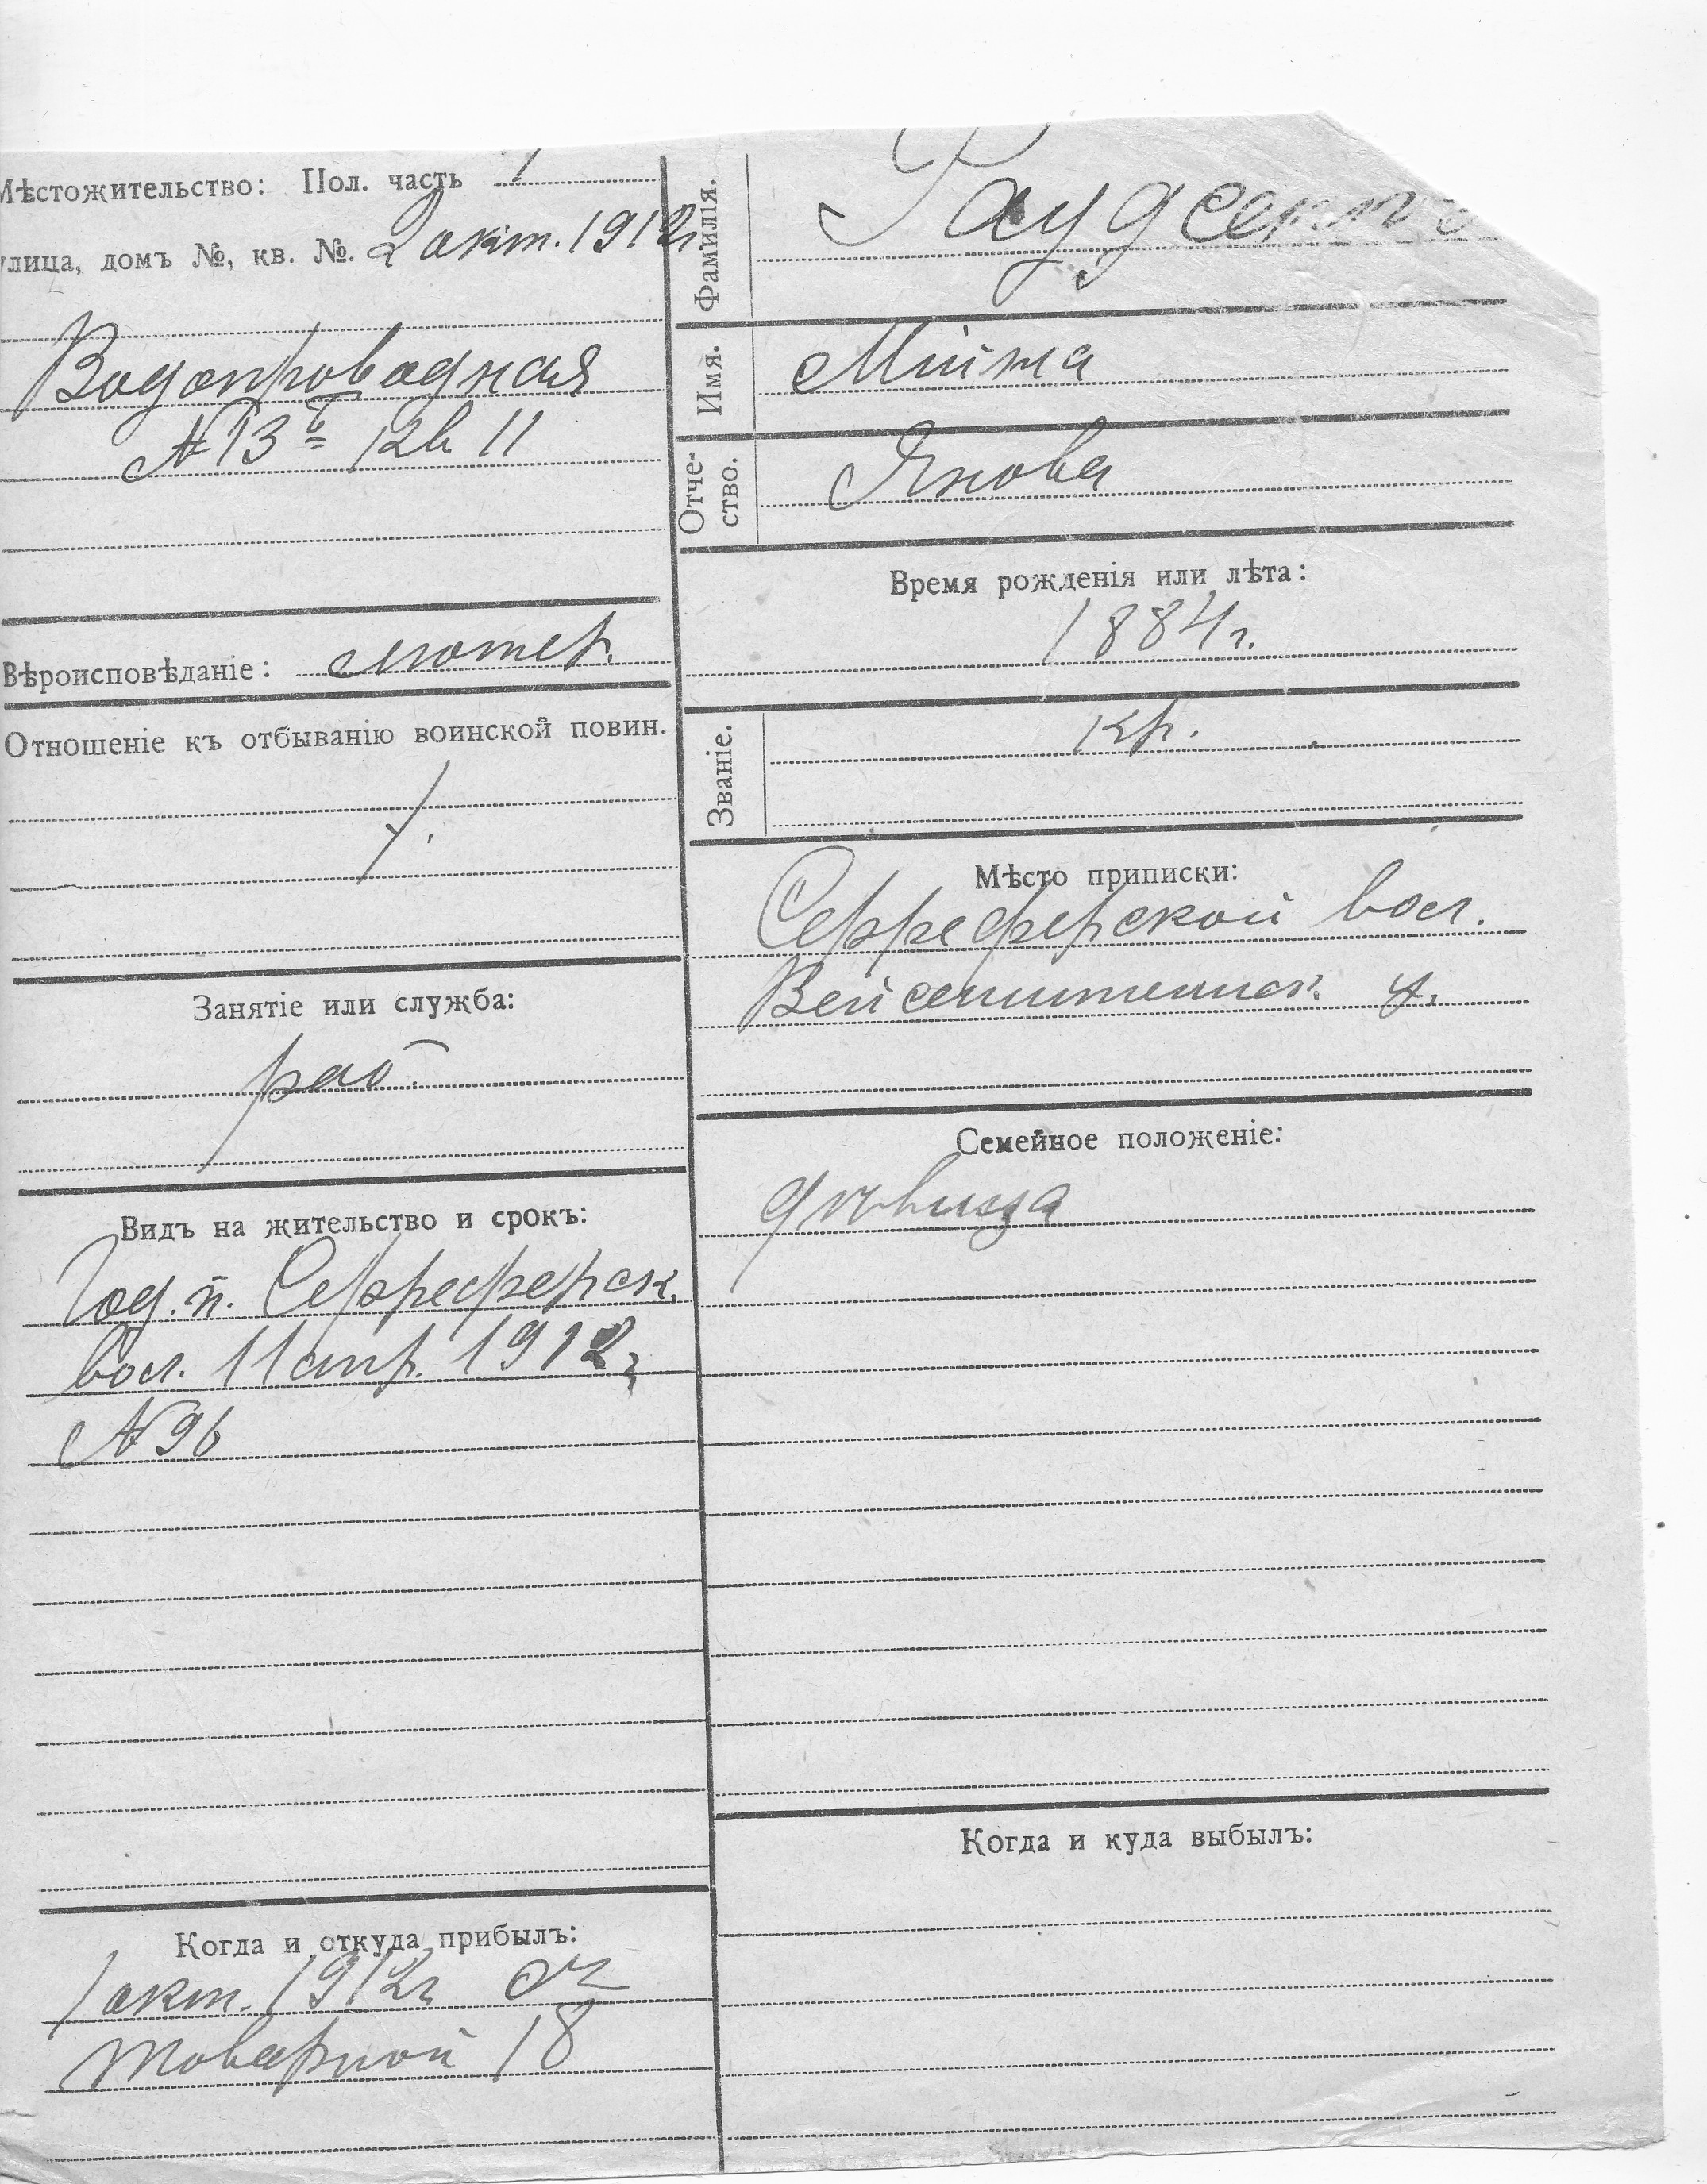 Мѣстожительство: Пол. часть 1
улица, домъ №, кв. №. 2 окт. 1912г
Водопроводная
№ 13ъ кв 11
Вѣроисповѣданіе: лютер.
Отношеніе къ отбыванію воинской повин.
Занятіе или служба:
раб.
Видъ на жительство и срокъ:
Год. п. Серреферск.
вол. 11 апр. 1912г
№ 96
Когда и откуда прибылъ:
1 окт. 1912г съ
товарной 18
Фамилія.
Имя. Мійна
Отче-
ство. Янова
Время рожденія или лѣта:
1884 г.
Званіе. кр.
Мѣсто приписки:
Серреферской вол.
Вейсенштейнск. у.
Семейное положеніе:
дѣвица
Когда и куда выбылъ: